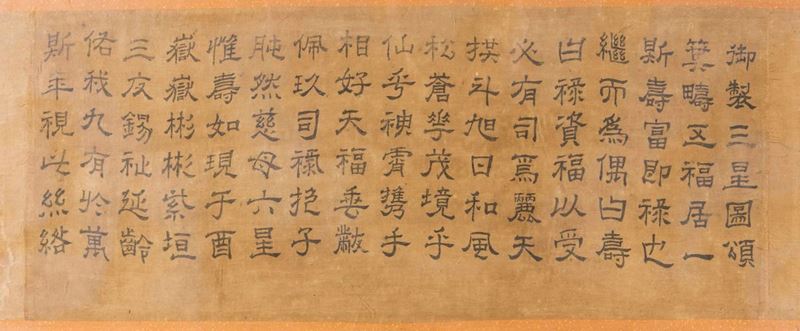 御製三星圖頌
箕疇五福居一
斯壽富即祿也
繼而爲偶曰壽
曰祿資福以受
必有司焉麗天
拱斗旭日和風
松蒼華茂境乎
仙乎神霄携手
相好天福垂黻
佩玖司祿抱子
肫然慈母六星
惟壽如現于酉
嶽嶽彬彬紫垣
三友錫祉延齡
佑我九有於萬
斯年視此絲綹